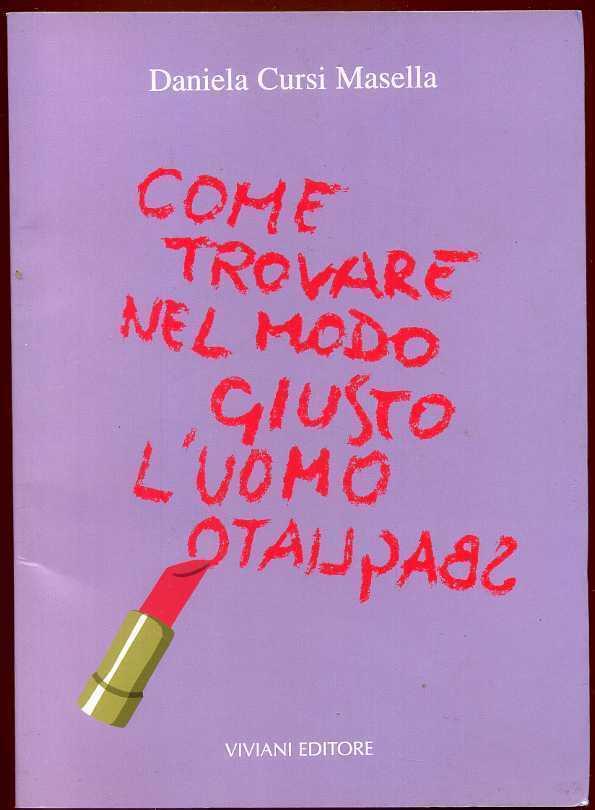 Daniela Cursi Masella
COME
TROVARE
NEL MODO
GIUSTO
L'UOMO
SBAGLIATO
VIVIANI EDITORE